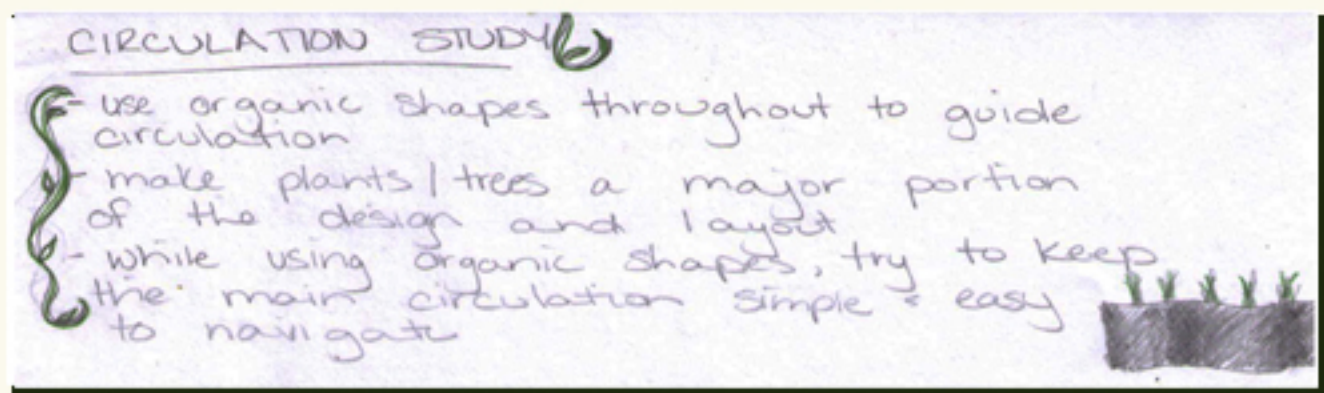 CIRCULATION STUDY
- use organic shapes throughout to guide
circulation
- make plants/trees a major portion
of the design and layout
- while using organic shapes, try to keep
the main circulation simple & easy
to navigate